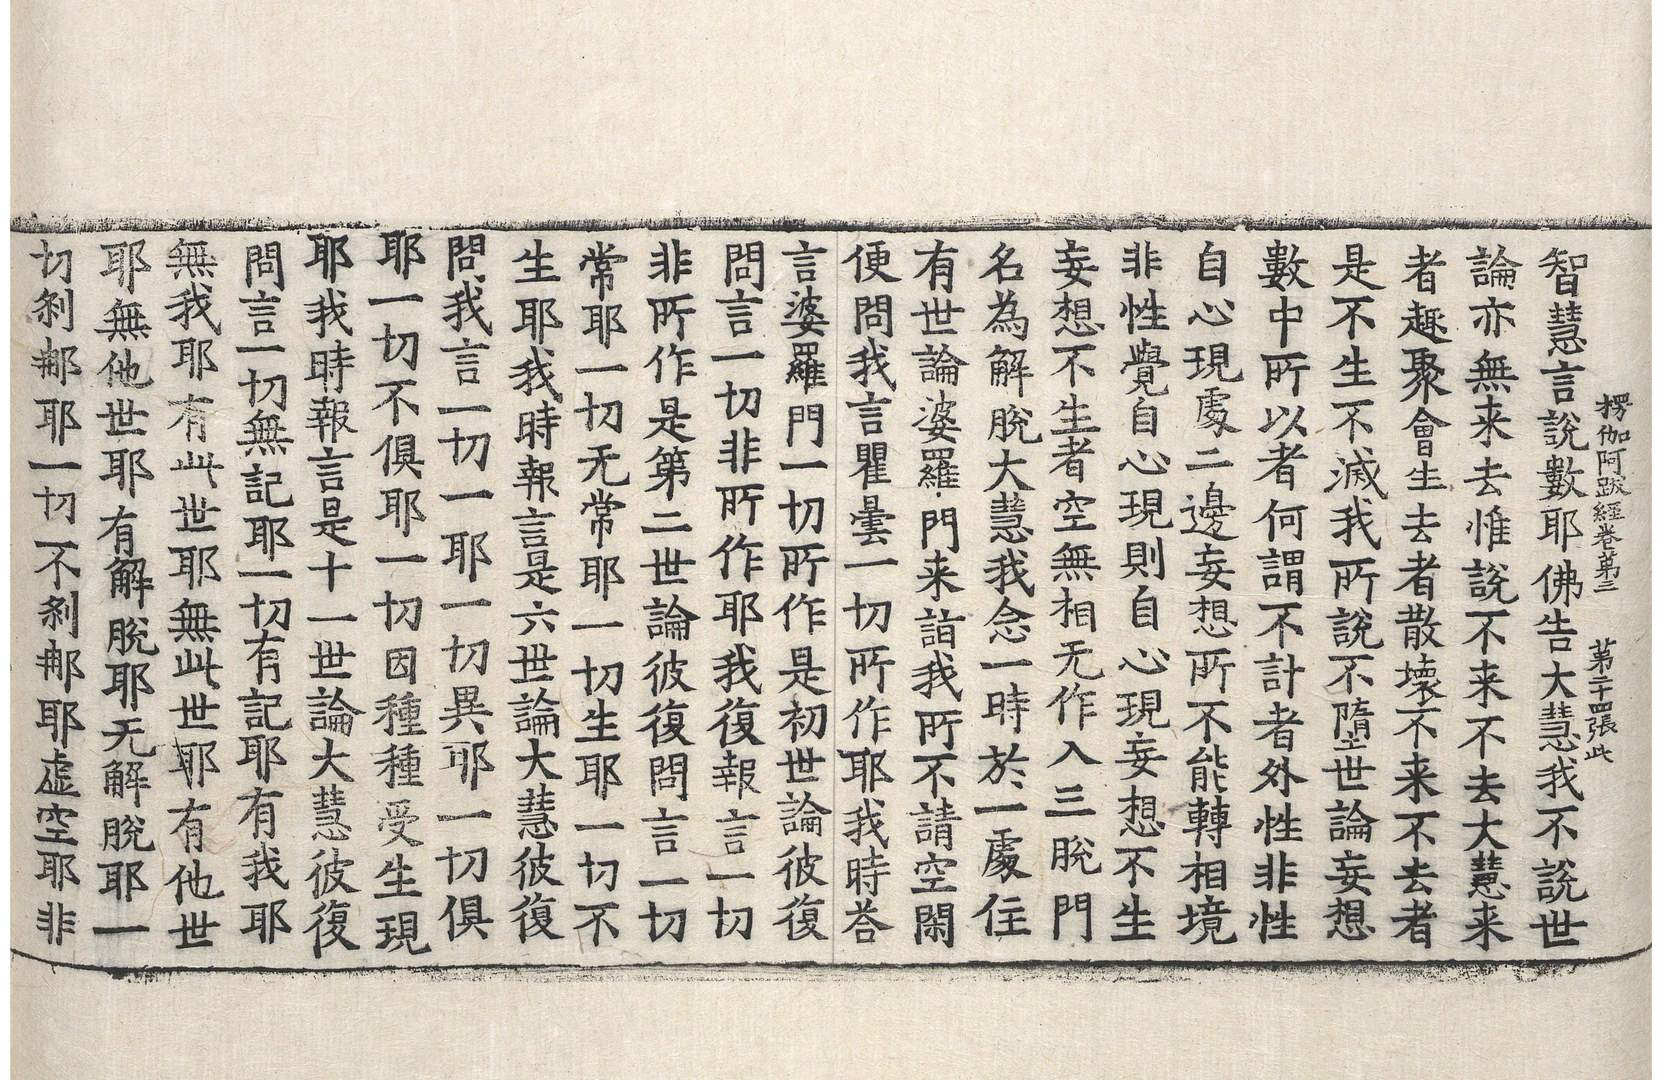 楞伽阿跋經卷第三 第二十四張 此
智慧言說數耶佛告大慧我不說世
論亦無来去惟說不来不去大慧来
者趣聚會生去者散壞不来不去者
是不生不滅我所說不墮世論妄想
數中所以者何謂不計著外性非性
自心現處二邊妄想所不能轉相境
非性覺自心現則自心現妄想不生
妄想不生者空無相无作入三脫門
名為解脫大慧我念一時於一處住
有世論婆羅門来詣我所不請空閑
便問我言瞿曇一切所作耶我時荅
言婆羅門一切所作是初世論彼復
問言一切非所作耶我復報言一切
非所作是第二世論彼復問言一切
常耶一切无常耶一切生耶一切不
生耶我時報言是六世論大慧彼復
問我言一切一耶一切異耶一切俱
耶一切不俱耶一切因種種受生現
耶我時報言是十一世論大慧彼復
問言一切無記耶一切有記耶有我耶
無我耶有此世耶無此世耶有他世
耶無他世耶有解脫耶无解脫耶一
切刹那耶一切不刹那耶虛空耶非